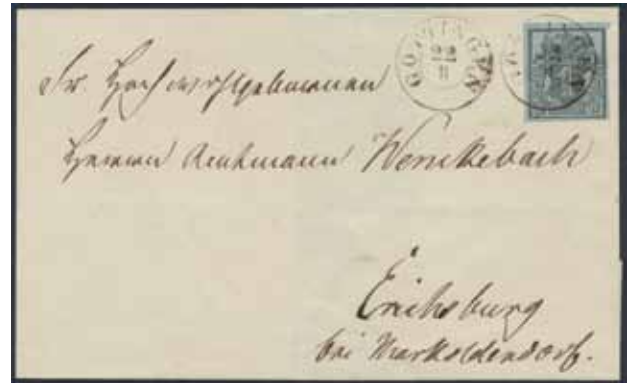 GÖTTINGEN
22
11
Sr. Hochwohlgebornen
Herrn Amtmann Wenckebach
Erichsburg
bei Markoldendorf.